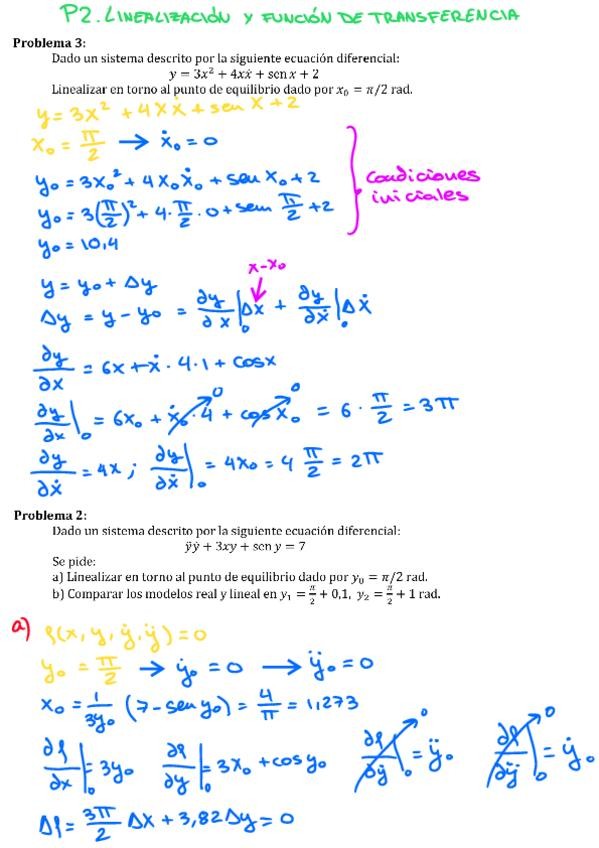 P2. LINEALIZACIÓN Y FUNCIÓN DE TRANSFERENCIA
Problema 3:
Dado un sistema descrito por la siguiente ecuación diferencial:
y = 3x² + 4xẋ + sen x + 2
Linealizar en torno al punto de equilibrio dado por x₀ = π/2 rad.
y = 3x² + 4xẋ + sen x + 2
x₀ = π/2 → ẋ₀ = 0
y₀ = 3x₀² + 4x₀ẋ₀ + sen x₀ + 2
condiciones iniciales
y₀ = 3(π/2)² + 4·π/2·0 + sen π/2 + 2
y₀ = 10,4
x-x₀
y = y₀ + Δy
Δy = y - y₀ = ∂y/∂x|₀ Δx + ∂y/∂ẋ|₀ Δẋ
∂y/∂x = 6x + ẋ · 4 · 1 + cos x
∂y/∂x|₀ = 6x₀ + ẋ₀ · 4 (→ 0) + cos x₀ (→ 0) = 6 · π/2 = 3π
∂y/∂ẋ = 4x ; ∂y/∂ẋ|₀ = 4x₀ = 4 π/2 = 2π
Problema 2:
Dado un sistema descrito por la siguiente ecuación diferencial:
ÿẏ + 3xy + sen y = 7
Se pide:
a) Linealizar en torno al punto de equilibrio dado por y₀ = π/2 rad.
b) Comparar los modelos real y lineal en y₁ = π/2 + 0,1, y₂ = π/2 + 1 rad.
a) f(x, y, ẏ, ÿ) = 0
y₀ = π/2 → ẏ₀ = 0 → ÿ₀ = 0
x₀ = 1/3y₀ (7 - sen y₀) = 4/π = 1,273
∂f/∂x|₀ = 3y₀ ∂f/∂y|₀ = 3x₀ + cos y₀ ∂f/∂ẏ|₀ (→ 0) = ÿ₀ ∂f/∂ÿ|₀ (→ 0) = ẏ₀
Δf = 3π/2 Δx + 3,82 Δy = 0